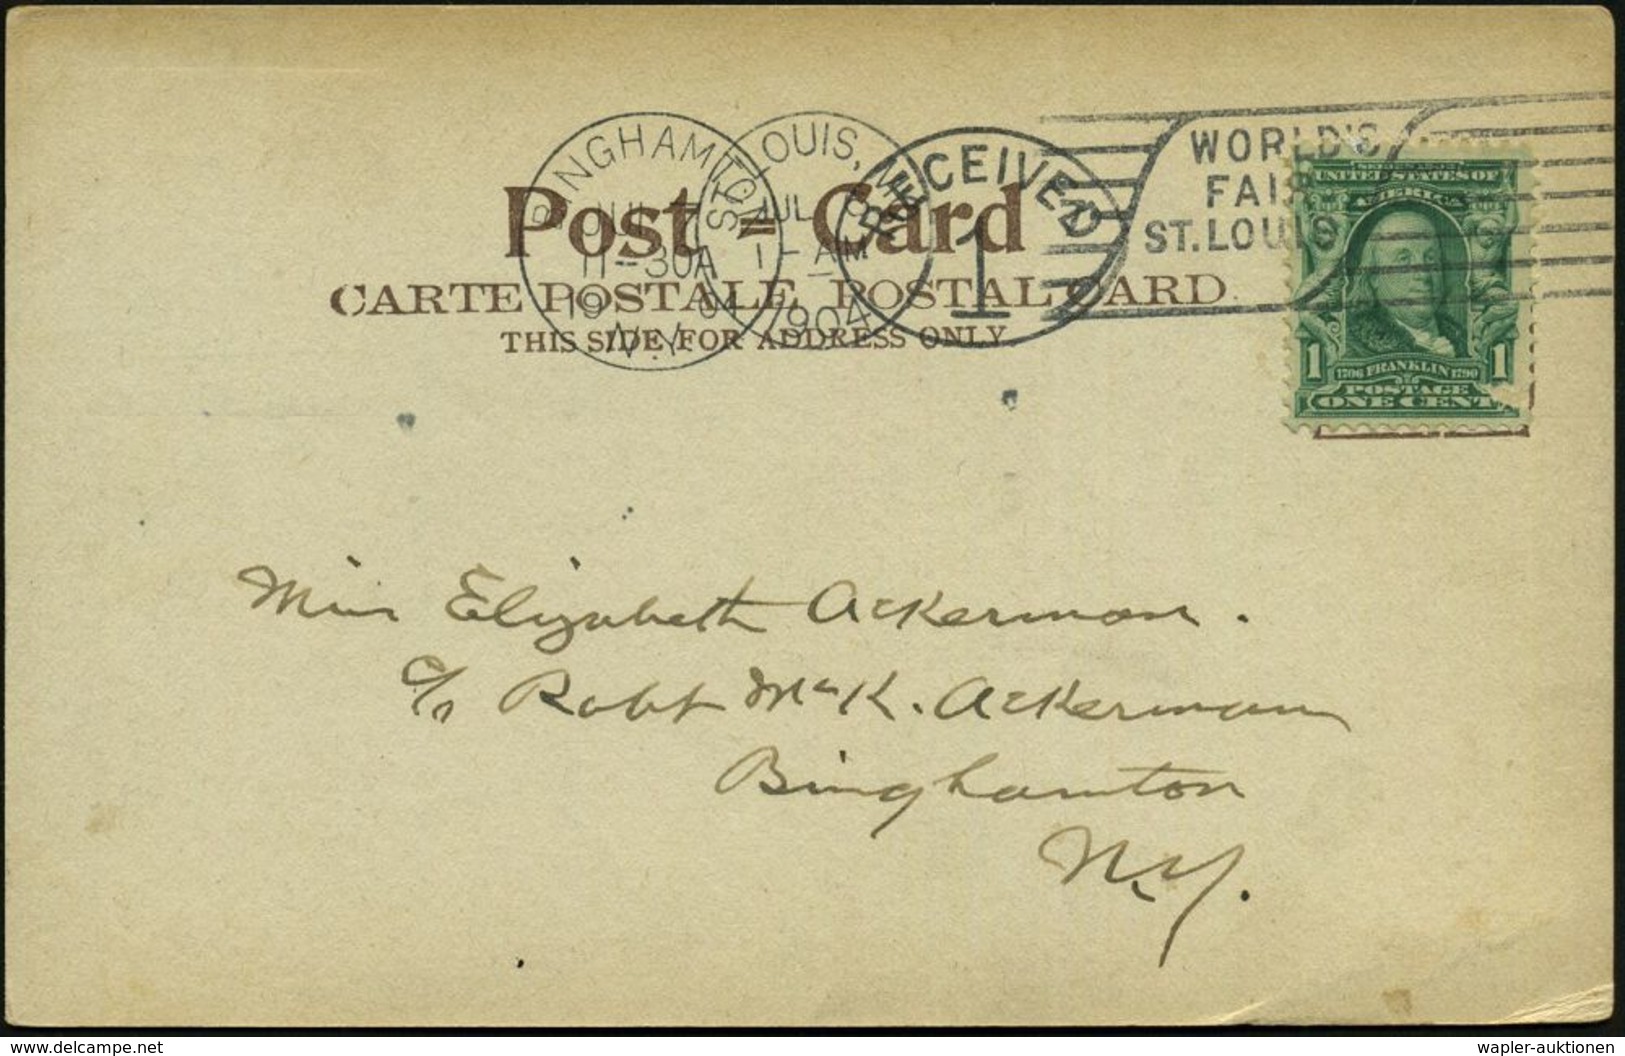 BINGHAMTON
JUL
11-30A
19 04
N.Y.
ST. LOUIS, M
JUL
1 - AM
1904
RECEIVED
1
WORLD'S
FAIR
ST. LOUIS
Post = Card
CARTE POSTALE, POSTAL CARD.
THIS SIDE FOR ADDRESS ONLY.
UNITED STATES OF
AMERICA
1 1706 FRANKLIN 1790 1
POSTAGE
ONE CENT
Miss Elizabeth Ackerman.
c/o Robt McK. Ackerman
Binghamton
N.Y.
www.delcampe.com
wapler-auktionen